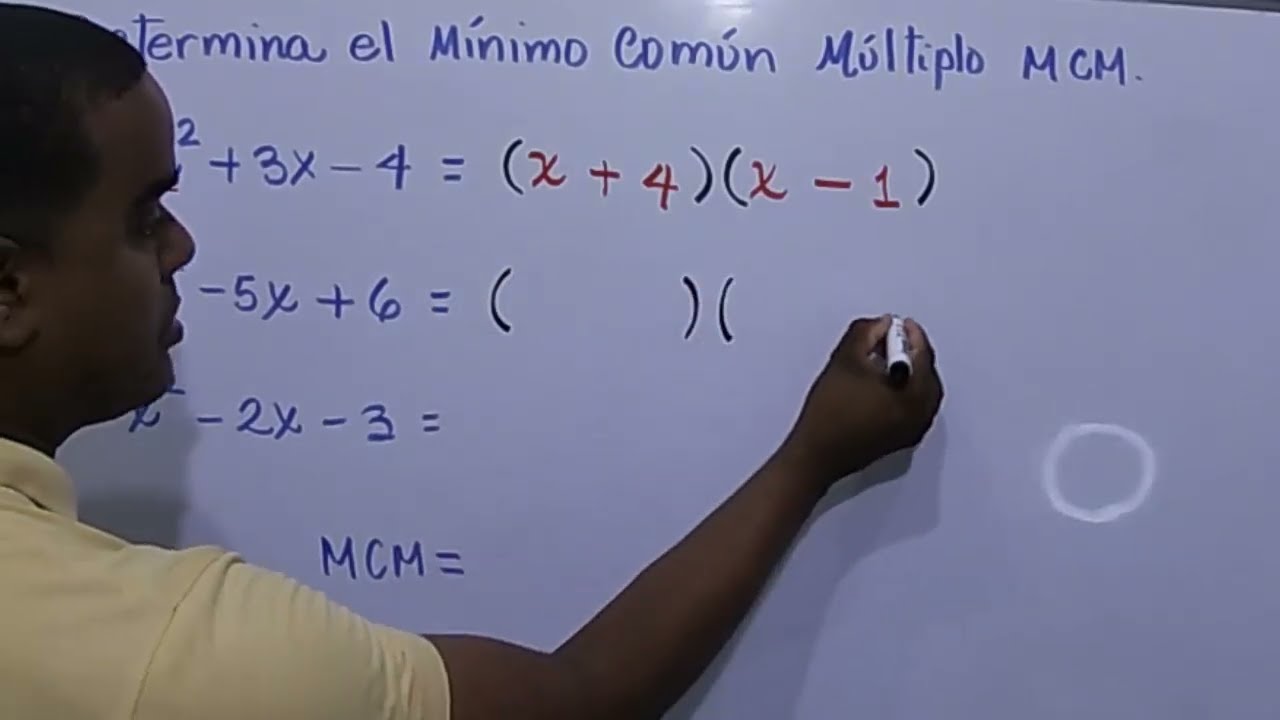 etermina el Mínimo Común Múltiplo MCM.
² + 3x - 4 = (x + 4)(x - 1)
- 5x + 6 = ( )(
x² - 2x - 3 =
MCM =